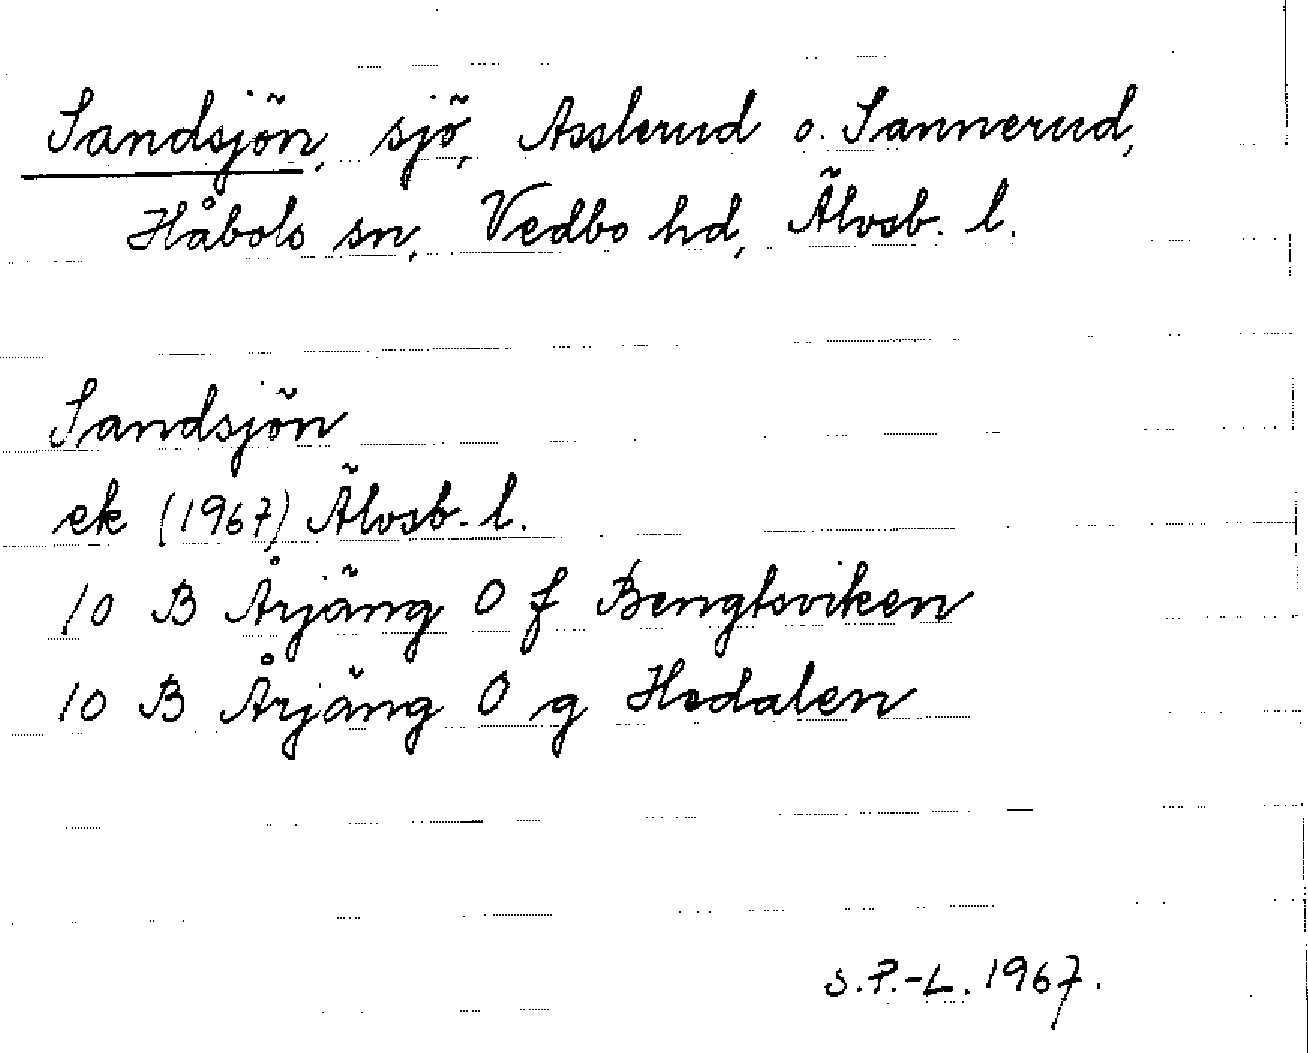 Sandsjön, sjö, Asslerud o. Sannerud,
Håbols sn, Vedbo hd, Älvsb. l.
Sandsjön
ek (1967) Älvsb. l.
10 B Årjäng 0 f Bengtsviken
10 B Årjäng 0 g Hedalen
S.P.-L. 1967.